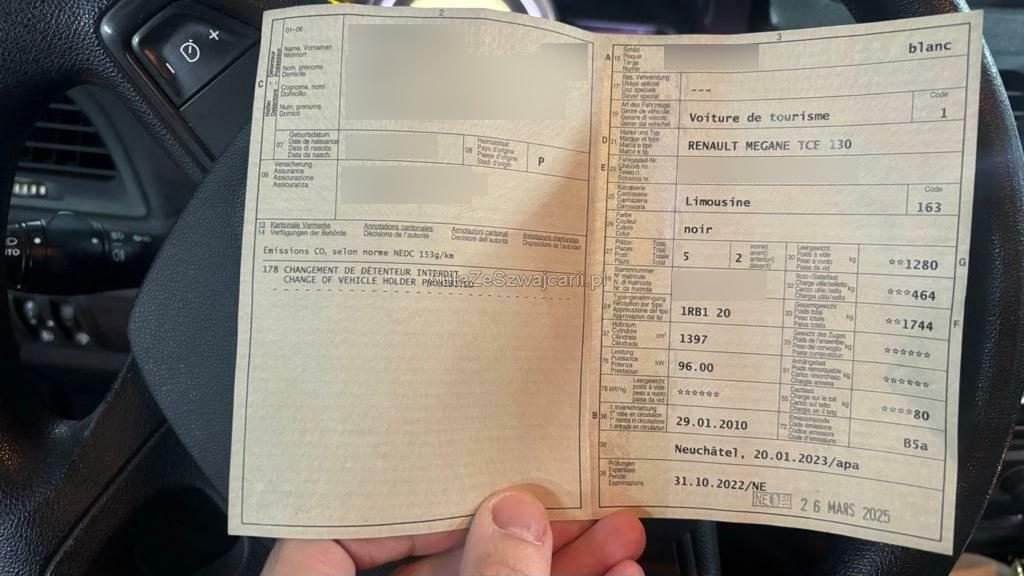 2
01-06
Name, Vornamen
Wohnort
Nom, prénoms
Domicile
C
Cognome, nomi
Domicilio
Num, prenums
Domicil
07
Geburtsdatum
Date de naissance
Data di nascita
Data da nasch.
08
Heimatstaat
Pays d'origine
Paese d'origine
Stadi d'origin
P
09
Versicherung
Assurance
Assicurazione
Assicuranza
13 Kantonale Vermerke
14 Verfügungen der Behörde
Annotations cantonales
Décisions de l'autorité
Annotazioni cantonali
Decisioni dell'autorità
Annotaziuns chantunalas
Disposiziuns da l'autoritad
Emissions CO₂ selon norme NEDC 153g/km
178 CHANGEMENT DE DÉTENTEUR INTERDIT
CHANGE OF VEHICLE HOLDER PROHIBITED
AutaZeSzwajcarii.pl
3
A 15
Schild
Plaque
Targa
Numer
blanc
Bes. Verwendung
Usage spécial
Uso speciale
Diever spezial
---
Art des Fahrzeugs
Genre de véhicule
Genere di veicolo
Gener dal vehichel
Voiture de tourisme
Code
1
D 21
Marke und Typ
Marque et type
Marca e tipo
Marca e tip
RENAULT MEGANE TCE 130
E 23
Fahrgestell-Nr.
Châssis no
Telaio n.
Schassis nr.
25
Karosserie
Carrosserie
Carrozzeria
Carossaria
Limousine
Code
163
26
Farbe
Couleur
Colore
Colur
noir
27
Plätze: Total
Places: Total
Posti: Totale
Plazs: Total
5
2
vorne)
avant)
anteriori)
davant)
30
Leergewicht
Poids à vide
Peso a vuoto
Paisa da vid
kg
**1280
G
Stammnummer
N° matricule
N. di matricola
Nr. da matricla
32
Nutz-/Sattellast
Charge utile/sellette
Carico utile/sella
Chargia utila/sella
kg
***464
24
Typengenehmigung
Réception par type
Approvazione del tipo
Approvaziun dal tip
1RB1 20
33
Gesamtgewicht
Poids total
Peso totale
Paisa totala
kg
**1744
F
37
Hubraum
Cylindrée
Cilindrata
Cilindrada
cm³
1397
35
Gewicht des Zuges
Poids de l'ensemble
Peso del convoglio
Paisa cumposiziun
kg
******
76
Leistung
Puissance
Potenza
Prestaziun
kW
96.00
31
Anhängelast
Poids remorquable
Carico rimorchiato
Chargia annexa
kg
******
78 kW/kg
Leergewicht
poids à vide
peso a vuoto
paisa da vid
******
55
Dachlast
Charge sur le toit
Carico sul tetto
Chargia sin il tetg
kg
****80
B 36
1. Inverkehrsetzung
1re mise en circulation
1a messa in circolazione
1. entrada en circulaziun
29.01.2010
72
Emissionscode
Code émissions
Codice emissioni
Code d'emissiuns
B5a
38
Neuchâtel, 20.01.2023/apa
39
Prüfungen
Expertises
Perizie
Examinaziuns
31.10.2022/NE
NE
26 MARS 2025